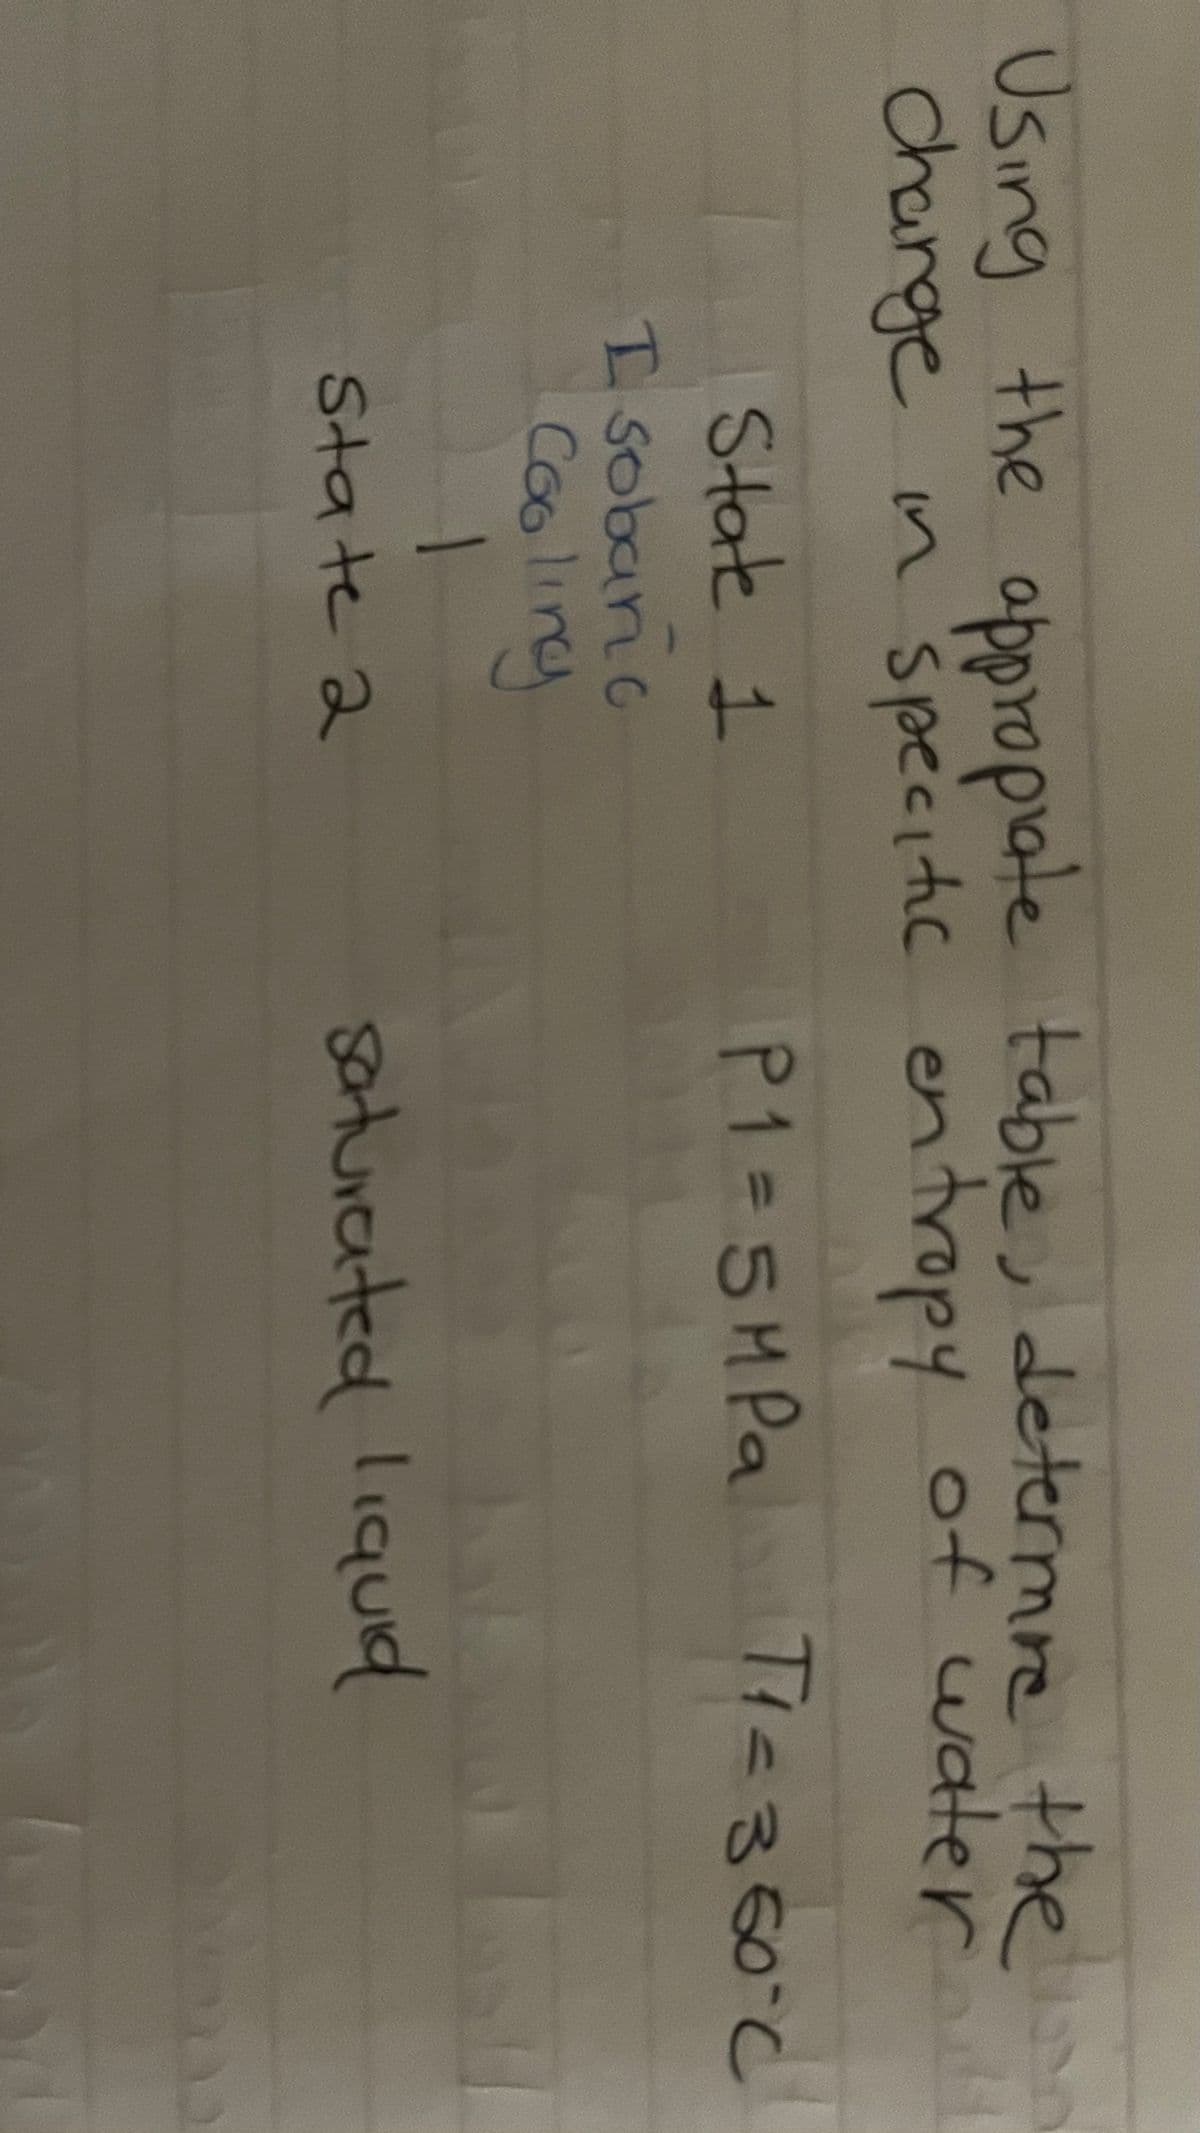 Using the appropriate table, determine the
change in specific entropy of water
State 1 P1 = 5 MPa T1 = 350°C
Isobaric
Cooling
State 2 saturated liquid